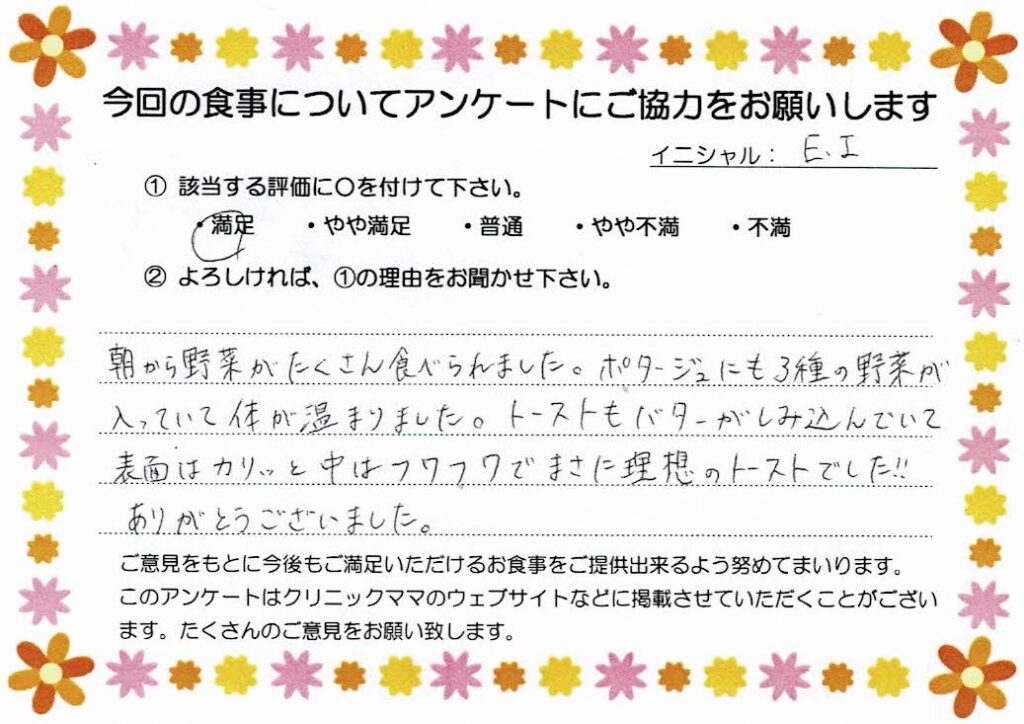 今回の食事についてアンケートにご協力をお願いします
イニシャル： E.I
① 該当する評価に〇を付けて下さい。
・満足 ・やや満足 ・普通 ・やや不満 ・不満
② よろしければ、①の理由をお聞かせ下さい。
朝から野菜がたくさん食べられました。ポタージュにも3種の野菜が
入っていて体が温まりました。トーストもバターがしみ込んでいて
表面はカリッと中はフワフワでまさに理想のトーストでした!!
ありがとうございました。
ご意見をもとに今後もご満足いただけるお食事をご提供出来るよう努めてまいります。
このアンケートはクリニックママのウェブサイトなどに掲載させていただくことがござい
ます。たくさんのご意見をお願い致します。